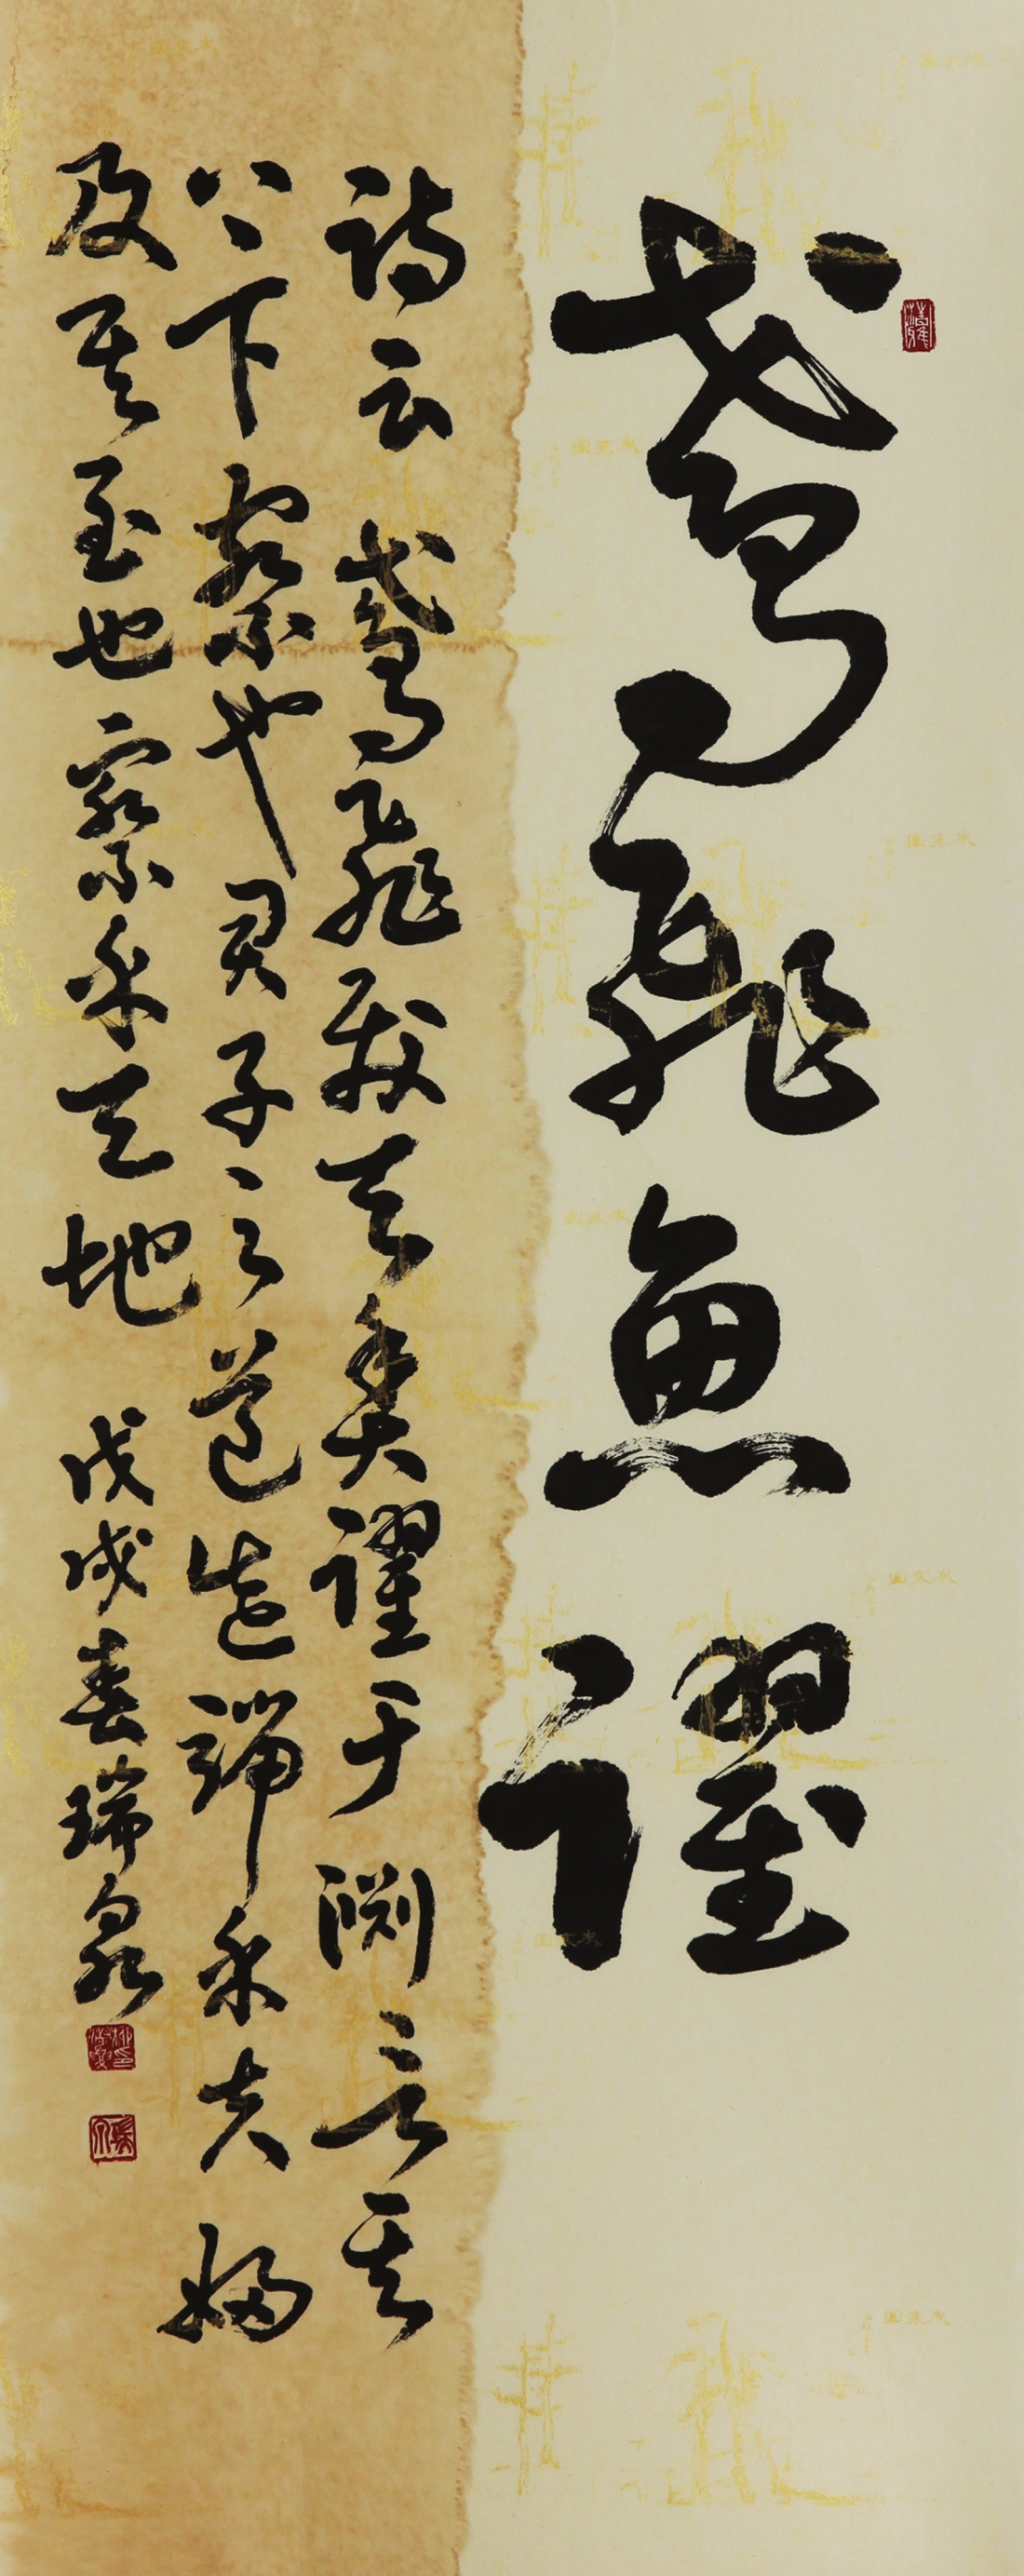 鸢飞鱼躍
诗云鸢飞戾天鱼躍于渊言其
上下察也君子之道造端乎夫婦
及其至也察乎天地 戊戌春瑞泉